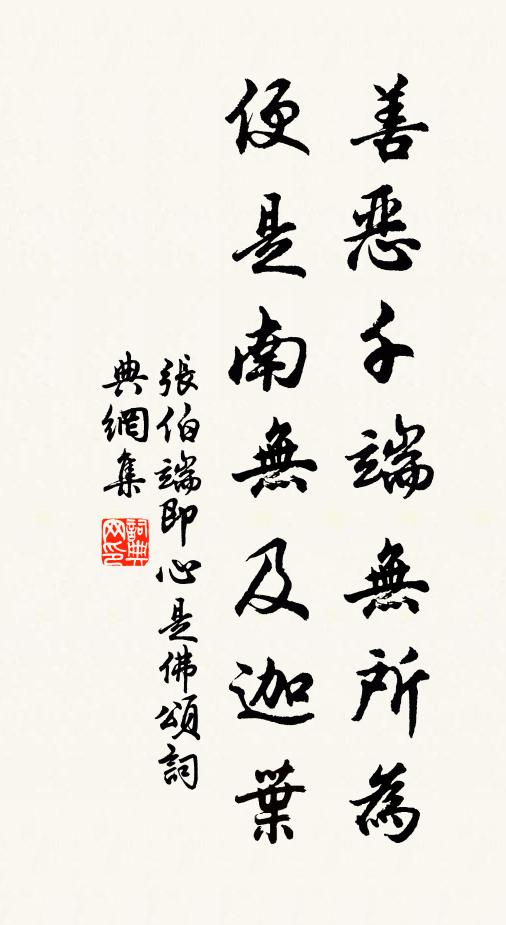 善惡千端無所為
便是南無及迦葉
張伯端即心是佛頌詞
典網集
詞典網印